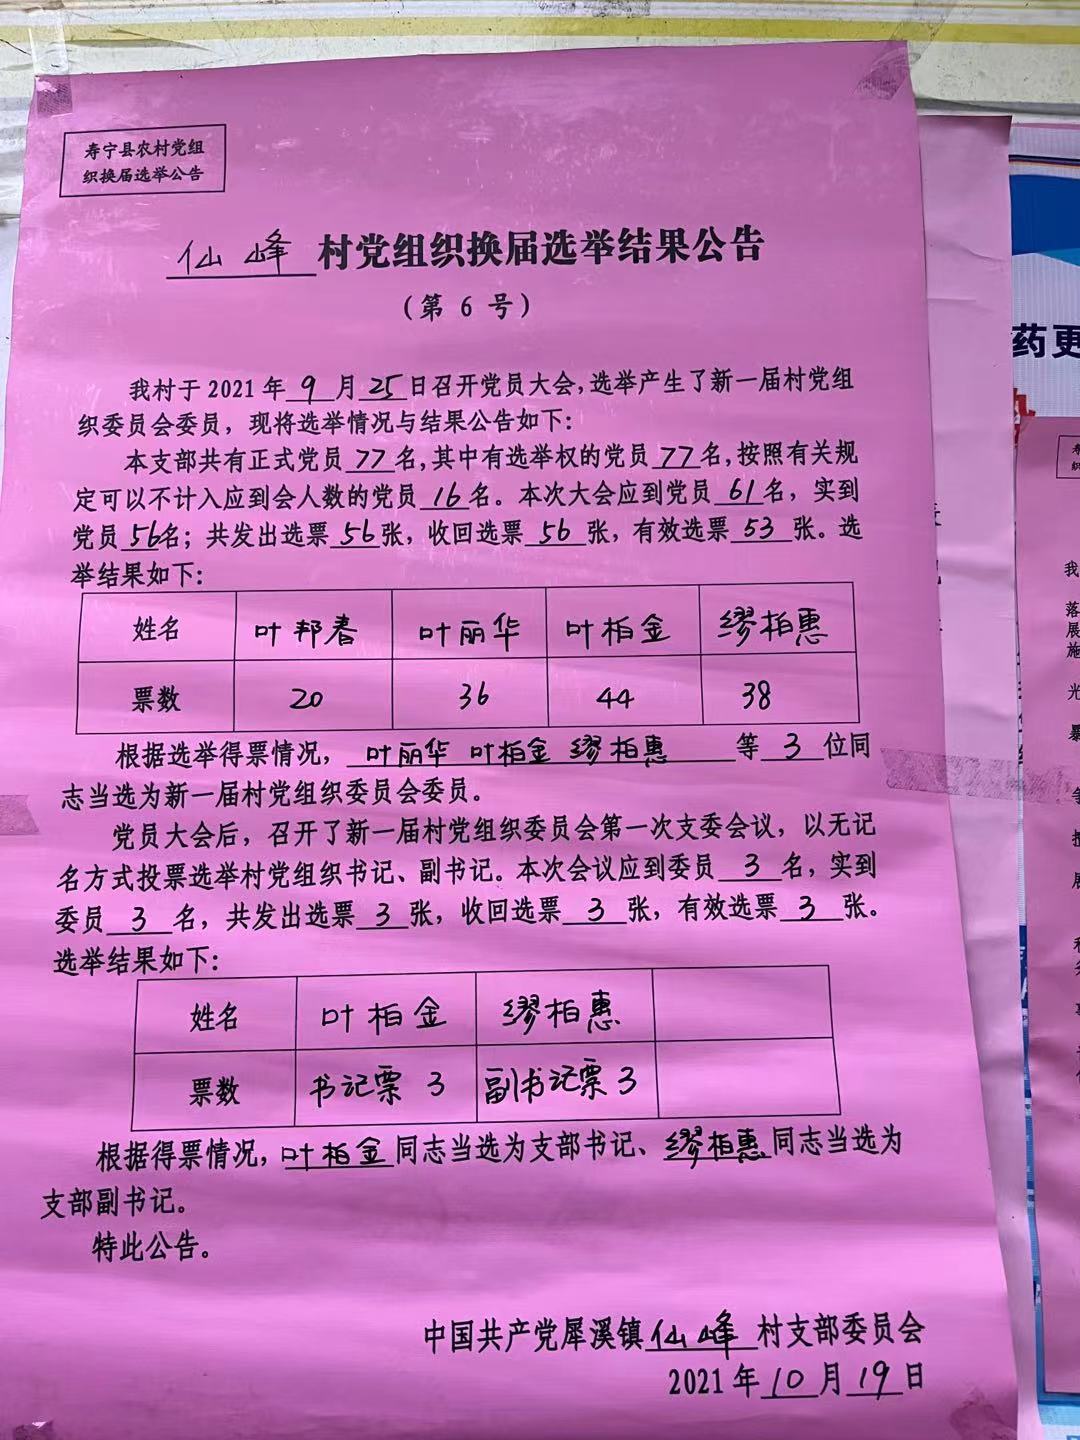 寿宁县农村党组
织换届选举公告
仙峰村党组织换届选举结果公告
（第 6 号）
我村于2021年9月25日召开党员大会，选举产生了新一届村党组
织委员会委员，现将选举情况与结果公告如下：
本支部共有正式党员77名，其中有选举权的党员77名，按照有关规
定可以不计入应到会人数的党员16名。本次大会应到党员61名，实到
党员56名；共发出选票56张，收回选票56张，有效选票53张。选
举结果如下：
姓名 叶邦春 叶丽华 叶柏金 缪柏惠
票数 20 36 44 38
根据选举得票情况，叶丽华 叶柏金 缪柏惠 等3位同
志当选为新一届村党组织委员会委员。
党员大会后，召开了新一届村党组织委员会第一次支委会议，以无记
名方式投票选举村党组织书记、副书记。本次会议应到委员3名，实到
委员3名，共发出选票3张，收回选票3张，有效选票3张。
选举结果如下：
姓名 叶柏金 缪柏惠
票数 书记票 3 副书记票 3
根据得票情况，叶柏金同志当选为支部书记、缪柏惠同志当选为
支部副书记。
特此公告。
中国共产党犀溪镇仙峰村支部委员会
2021年10月19日
药更